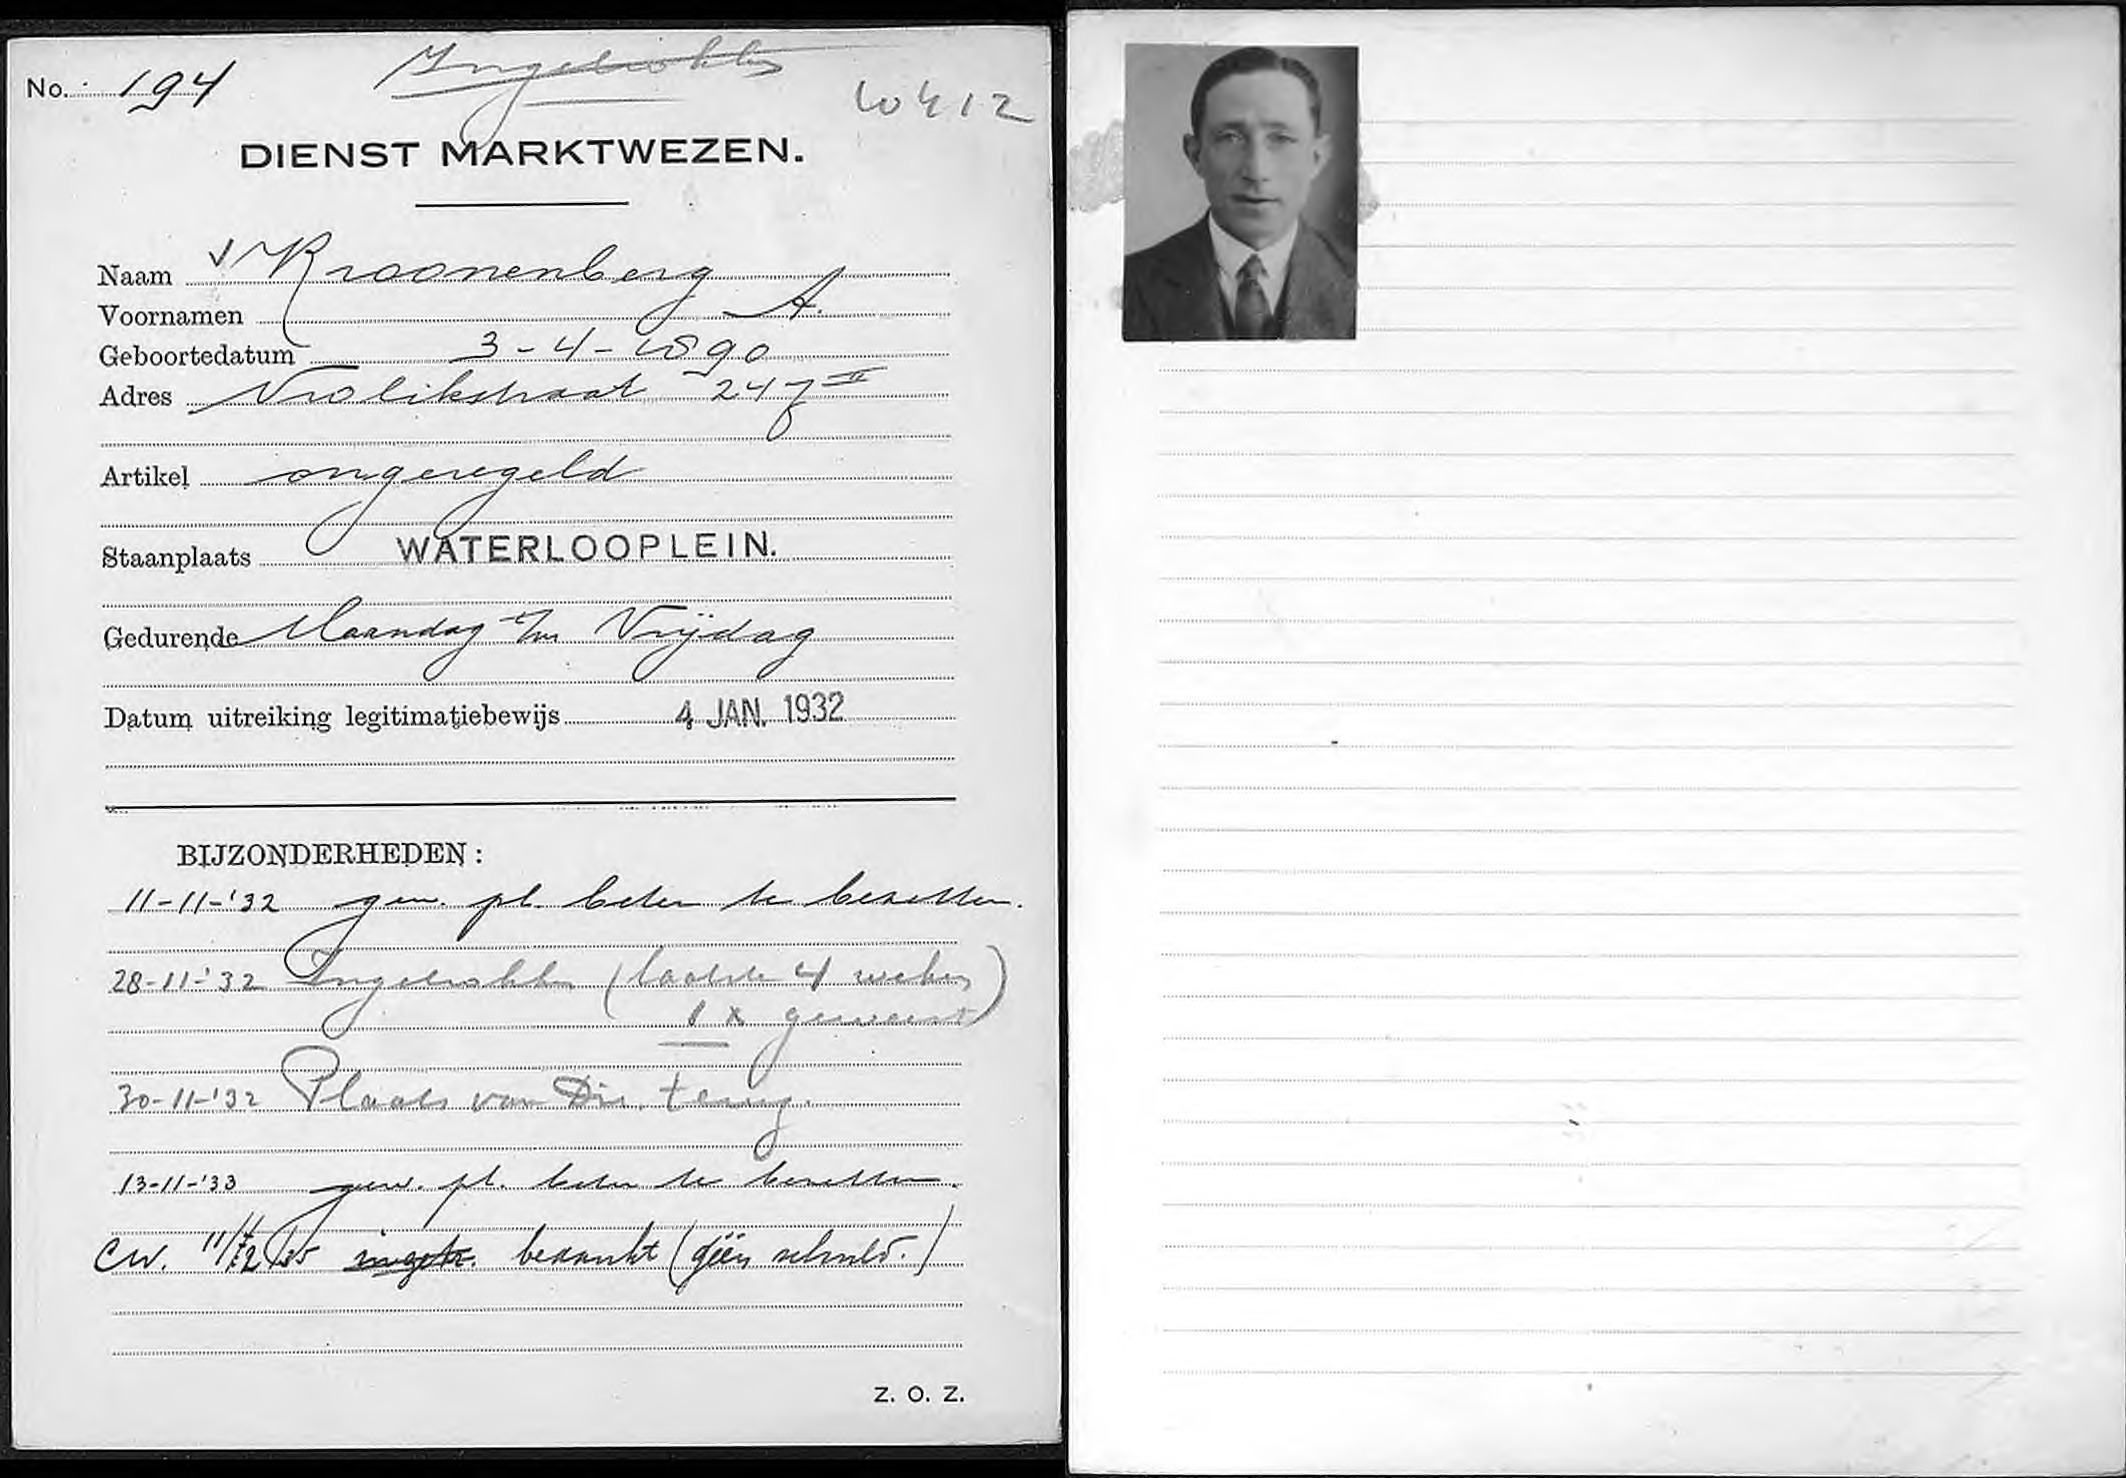 No. 194
Ingetrokken
W412
DIENST MARKTWEZEN.
Naam Kroonenberg
Voornamen A.
Geboortedatum 3-4-1890
Adres Vrolikstraat 247 II
Artikel ongeregeld
Staanplaats WATERLOOPLEIN.
Gedurende Maandag t/m Vrijdag
Datum uitreiking legitimatiebewijs 4 JAN. 1932
BIJZONDERHEDEN:
11-11-'32 gew. pl. beter te bezetten.
28-11-'32 Ingetrokken (laatste 4 weken
1 x geweest)
30-11-'32 Plaats van Dir. terug.
13-11-'33 gew. pl. beter te bezetten.
CW. '35 ingetr. bedankt (géén schuld.)
Z. O. Z.